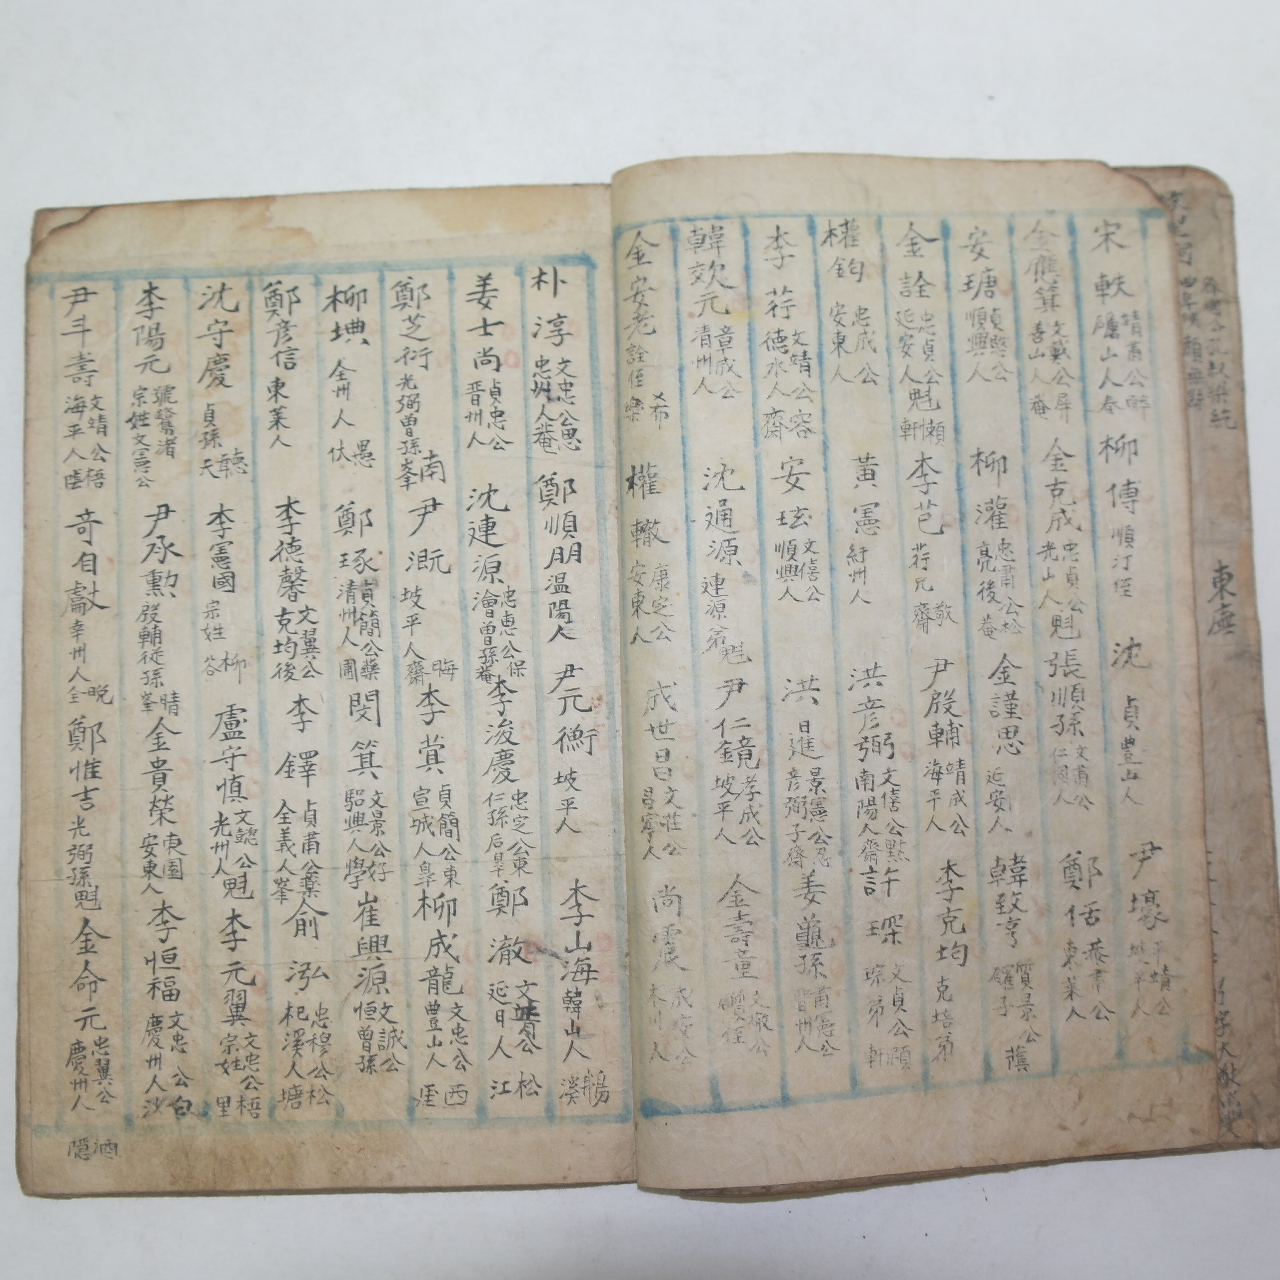 東廡
宋軼 礪山人 靖肅公 春軒 柳傅 順汀侄 沈貞 豊山人 尹壕 坡平人 平靖公
金應箕 善山人 文戴公 屏菴 金克成 光山人 忠貞公 魁 張順孫 仁同人 文肅公 鄭佸 東萊人 恭肅公
安瑭 順興人 貞愍公 柳灌 亮後 忠肅公 松菴 金謹思 近安人 韓致亨 確子 質景公 蔭
金詮 延安人 忠貞公 魁 懶軒 李芑 荇兄 敬齋 尹殷輔 海平人 靖成公 李克均 克培弟
權鈞 安東人 忠成公 黃憲 紆州人 洪彦弼 南陽人 文僖公 默齋 許琛 琮弟 文貞公 頤軒
李荇 德水人 文靖公 容齋 安玹 順興人 文僖公 洪暹 彦弼子 景憲公 忍齋 姜龜孫 晋州人 肅憲公
韓效元 清州人 章成公 沈通源 連源弟 魁 尹仁鏡 坡平人 孝成公 金壽童 礩侄 文敬公
金安老 詮侄 希樂 權轍 安東人 康定公 成世昌 昌寧人 文莊公 尚震 木川人 成安公
朴淳 忠州人 文忠公 思菴 鄭順朋 温陽人 尹元衡 坡平人 李山海 韓山人 鵝溪
姜士尚 晋州人 貞忠公 沈連源 澮曾孫 忠惠公 保菴 李浚慶 仁孫后 忠定公 東皐 鄭澈 延日人 文清公 松江
鄭芝衍 光弼曾孫 南峯 尹溉 坡平人 晦齋 李蓂 宣城人 貞簡公 東皐 柳成龍 豊山人 文忠公 西厓
柳㙉 全州人 愚伏 鄭琢 清州人 貞簡公 藥圃 閔箕 驪興人 文景公 好學 崔興源 恒曾孫 文誠公
鄭彦信 東萊人 李德馨 克均後 文翼公 李鐸 全義人 貞肅公 藥峯 俞泓 杞溪人 忠穆公 松塘
沈守慶 貞孫 聽天 李憲國 宗姓 柳谷 盧守慎 光州人 文懿公 魁 李元翼 宗姓 文忠公 梧里
李陽元 宗姓 文憲公 號鷺渚 尹承勲 殷輔從孫 晴峯 金貴榮 安東人 東園 李恒福 慶州人 文忠公 白沙
尹斗壽 海平人 文靖公 梧陰 奇自獻 幸州人 晩全 鄭惟吉 光弼孫 魁 金命元 慶州人 忠翼公 酒隱